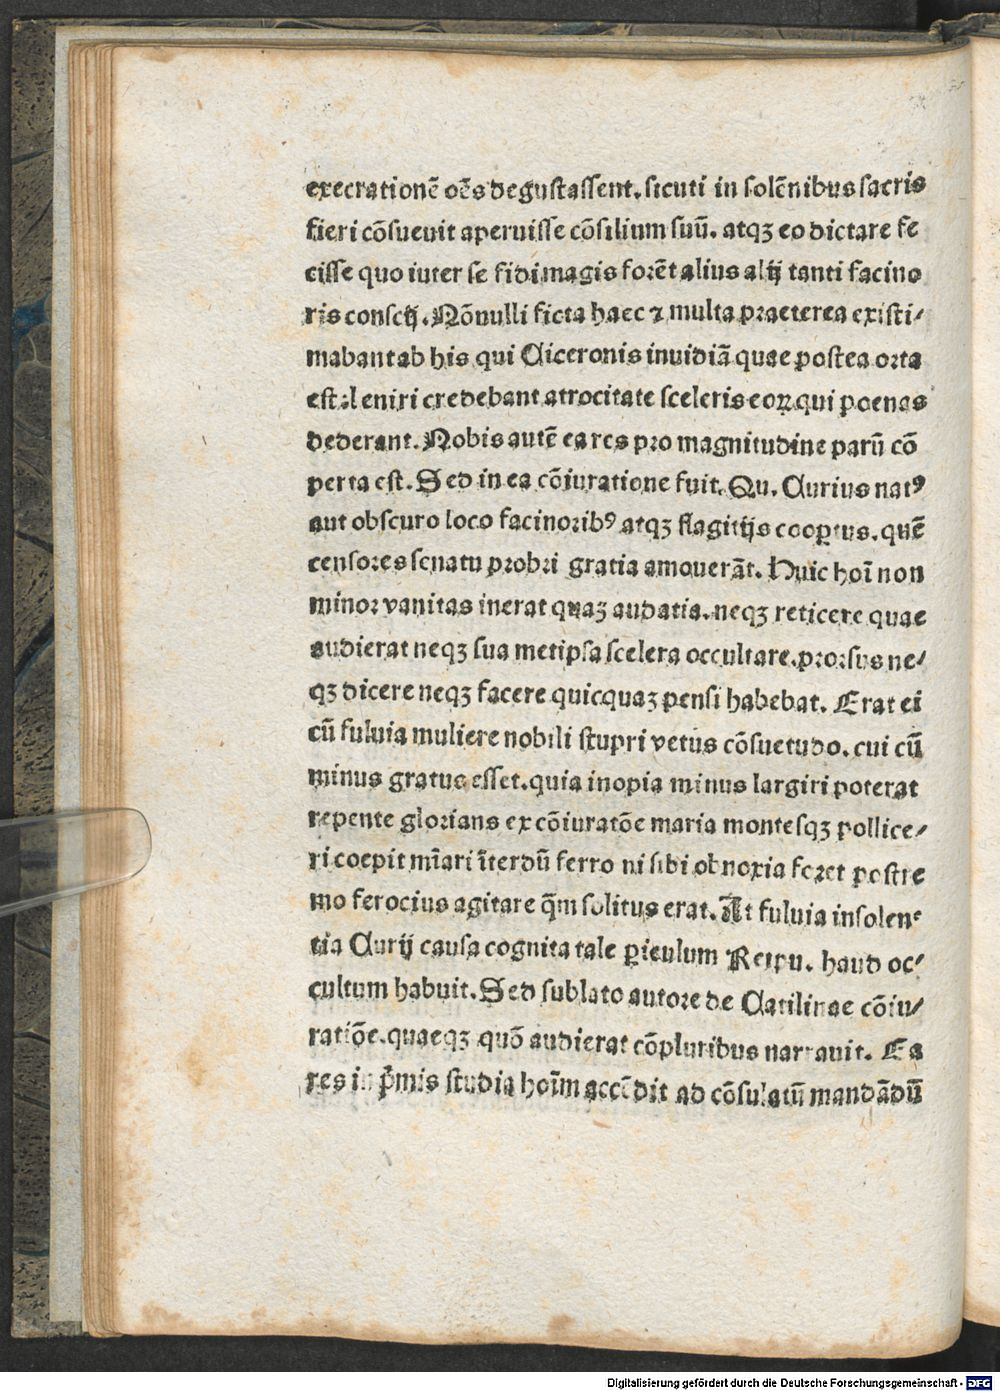 execrationē oēs degustassent. sicuti in solēnibus sacris
fieri cōsueuit aperuisse cōsilium suū. atqꝫ eo dictare fe
cisse quo iuter se fidi magis forēt alius alij tanti facino
ris conscij. Nōnulli ficta haec ⁊ multa praeterea existi⸗
mabant ab his qui Ciceronis inuidiā quae postea orta
est. leniri credebant atrocitate sceleris eoꝝ qui poenas
dederant. Nobis autē ea res pro magnitudine parū cō
perta est. Sed in ea cōiuratione fuit. Qu. Curius natꝰ
aut obscuro loco facinoribꝰ atqꝫ flagitijs cooꝑtus. quē
censores senatu probri gratia amouerāt. Huic hoī non
minor vanitas inerat quaꝫ audatia. neqꝫ reticere quae
audierat neqꝫ sua metipsa scelera occultare. prorsus ne⸗
qꝫ dicere neqꝫ facere quicquaꝫ pensi habebat. Erat ei
cū fuluia muliere nobili stupri vetus cōsuetudo. cui cū
minus gratus esset. quia inopia minus largiri poterat
repente glorians ex cōiuratōe maria montesqꝫ pollice⸗
ri coepit mīari īterdū ferro ni sibi obnoxia foret postre
mo ferocius agitare q̄m solitus erat. At fuluia insolen⸗
tia Curij causa cognita tale ꝑiculum Reipu. haud oc⸗
cultum habuit. Sed sublato autore de Catilinae cōiu⸗
ratiōe. quaeqꝫ quō audierat cōpluribus narrauit. Ea
res in p̄mis studia hoīm accēdit ad cōsulatū mandādū
Digitalisierung gefördert durch die Deutsche Forschungsgemeinschaft - DFG